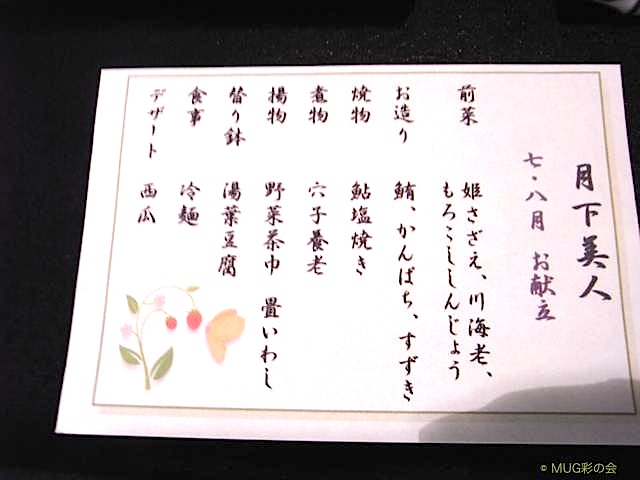 月下美人
七・八月 お献立
前菜 姫さざえ、川海老、
もろこししんじょう
お造り 鮪、かんぱち、すずき
焼物 鮎塩焼き
煮物 穴子養老
揚物 野菜茶巾 畳いわし
替り鉢 湯葉豆腐
食事 冷麺
デザート 西瓜
© MUG彩の会